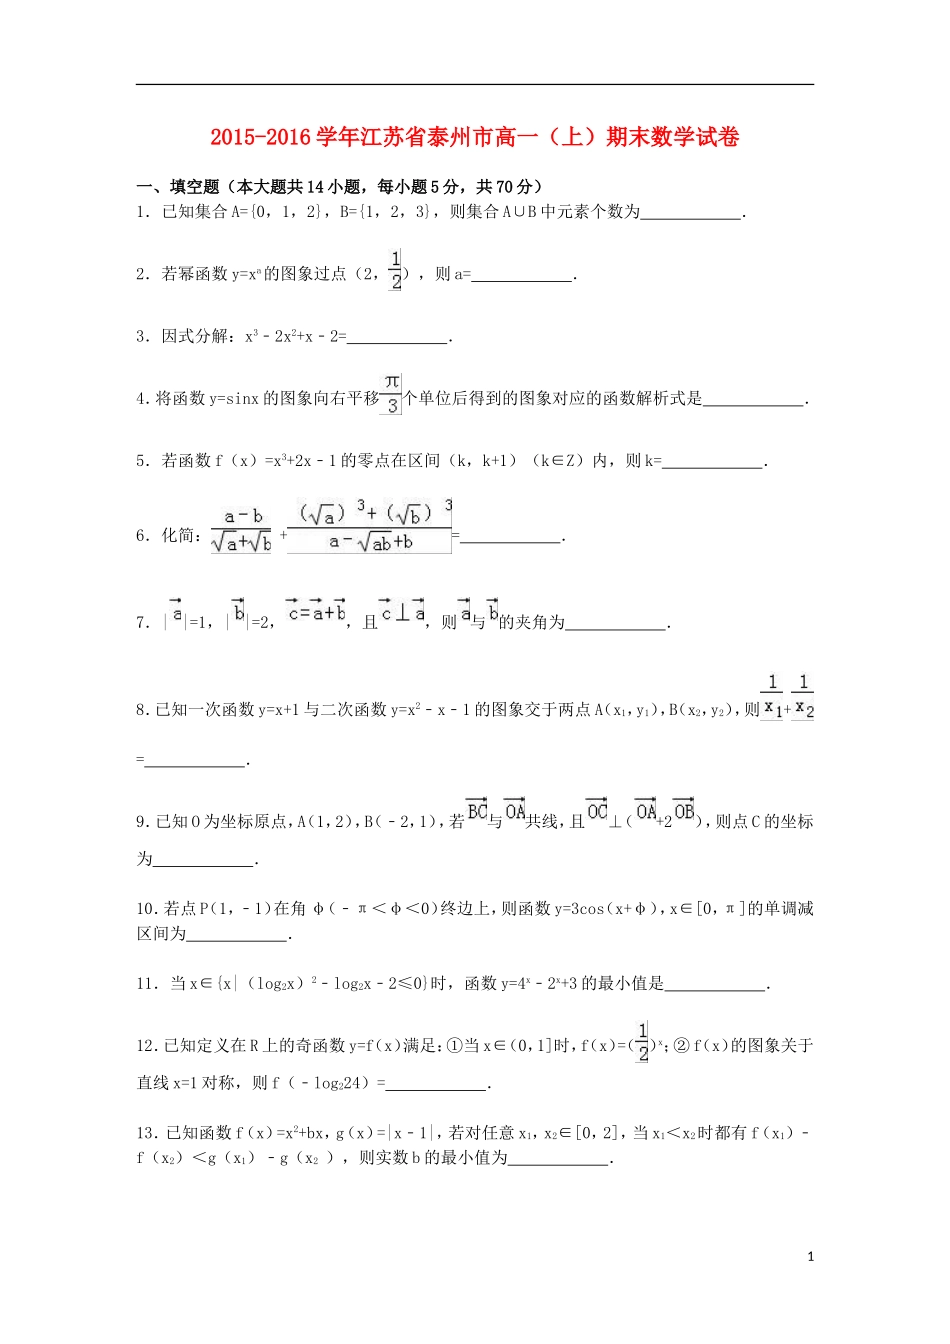 2015-2016 学年江苏省泰州市高一（上）期末数学试卷
一、填空题（本大题共 14 小题，每小题 5 分，共 70 分）
1．已知集合 A={0，1，2}，B={1，2，3}，则集合 A∪B 中元素个数为____________．
2．若幂函数 y=xᵃ的图象过点（2，1/2），则 a=____________．
3．因式分解：x³﹣2x²+x﹣2=____________．
4．将函数 y=sinx 的图象向右平移π/3个单位后得到的图象对应的函数解析式是____________．
5．若函数 f（x）=x³+2x﹣1 的零点在区间（k，k+1）（k∈Z）内，则 k=____________．
6．化简：(a-b)/(√a+√b) +((√a)³+(√b)³)/(a-√ab+b)=____________．
7．|a⃗|=1，|b⃗|=2，c⃗=a⃗+b⃗，且c⃗⊥a⃗，则a⃗与b⃗的夹角为____________．
8．已知一次函数 y=x+1 与二次函数 y=x²﹣x﹣1 的图象交于两点 A（x₁，y₁），B（x₂，y₂），则1/x₁+1/x₂
=____________．
9．已知 O 为坐标原点，A（1，2），B（﹣2，1），若BC⃗与OA⃗共线，且OC⃗⊥（OA⃗+2OB⃗），则点 C 的坐标
为____________．
10．若点 P（1，﹣1）在角 φ（﹣π＜φ＜0）终边上，则函数 y=3cos（x+φ），x∈[0，π]的单调减
区间为____________．
11．当 x∈{x|（log₂x）²﹣log₂x﹣2≤0}时，函数 y=4ˣ﹣2ˣ+3 的最小值是____________．
12．已知定义在 R 上的奇函数 y=f（x）满足：①当 x∈（0，1]时，f（x）=（1/2）ˣ；② f（x）的图象关于
直线 x=1 对称，则 f（﹣log₂24）=____________．
13．已知函数 f（x）=x²+bx，g（x）=|x﹣1|，若对任意 x₁，x₂∈[0，2]，当 x₁＜x₂时都有 f（x₁）﹣
f（x₂）＜g（x₁）﹣g（x₂ ），则实数 b 的最小值为____________．
1